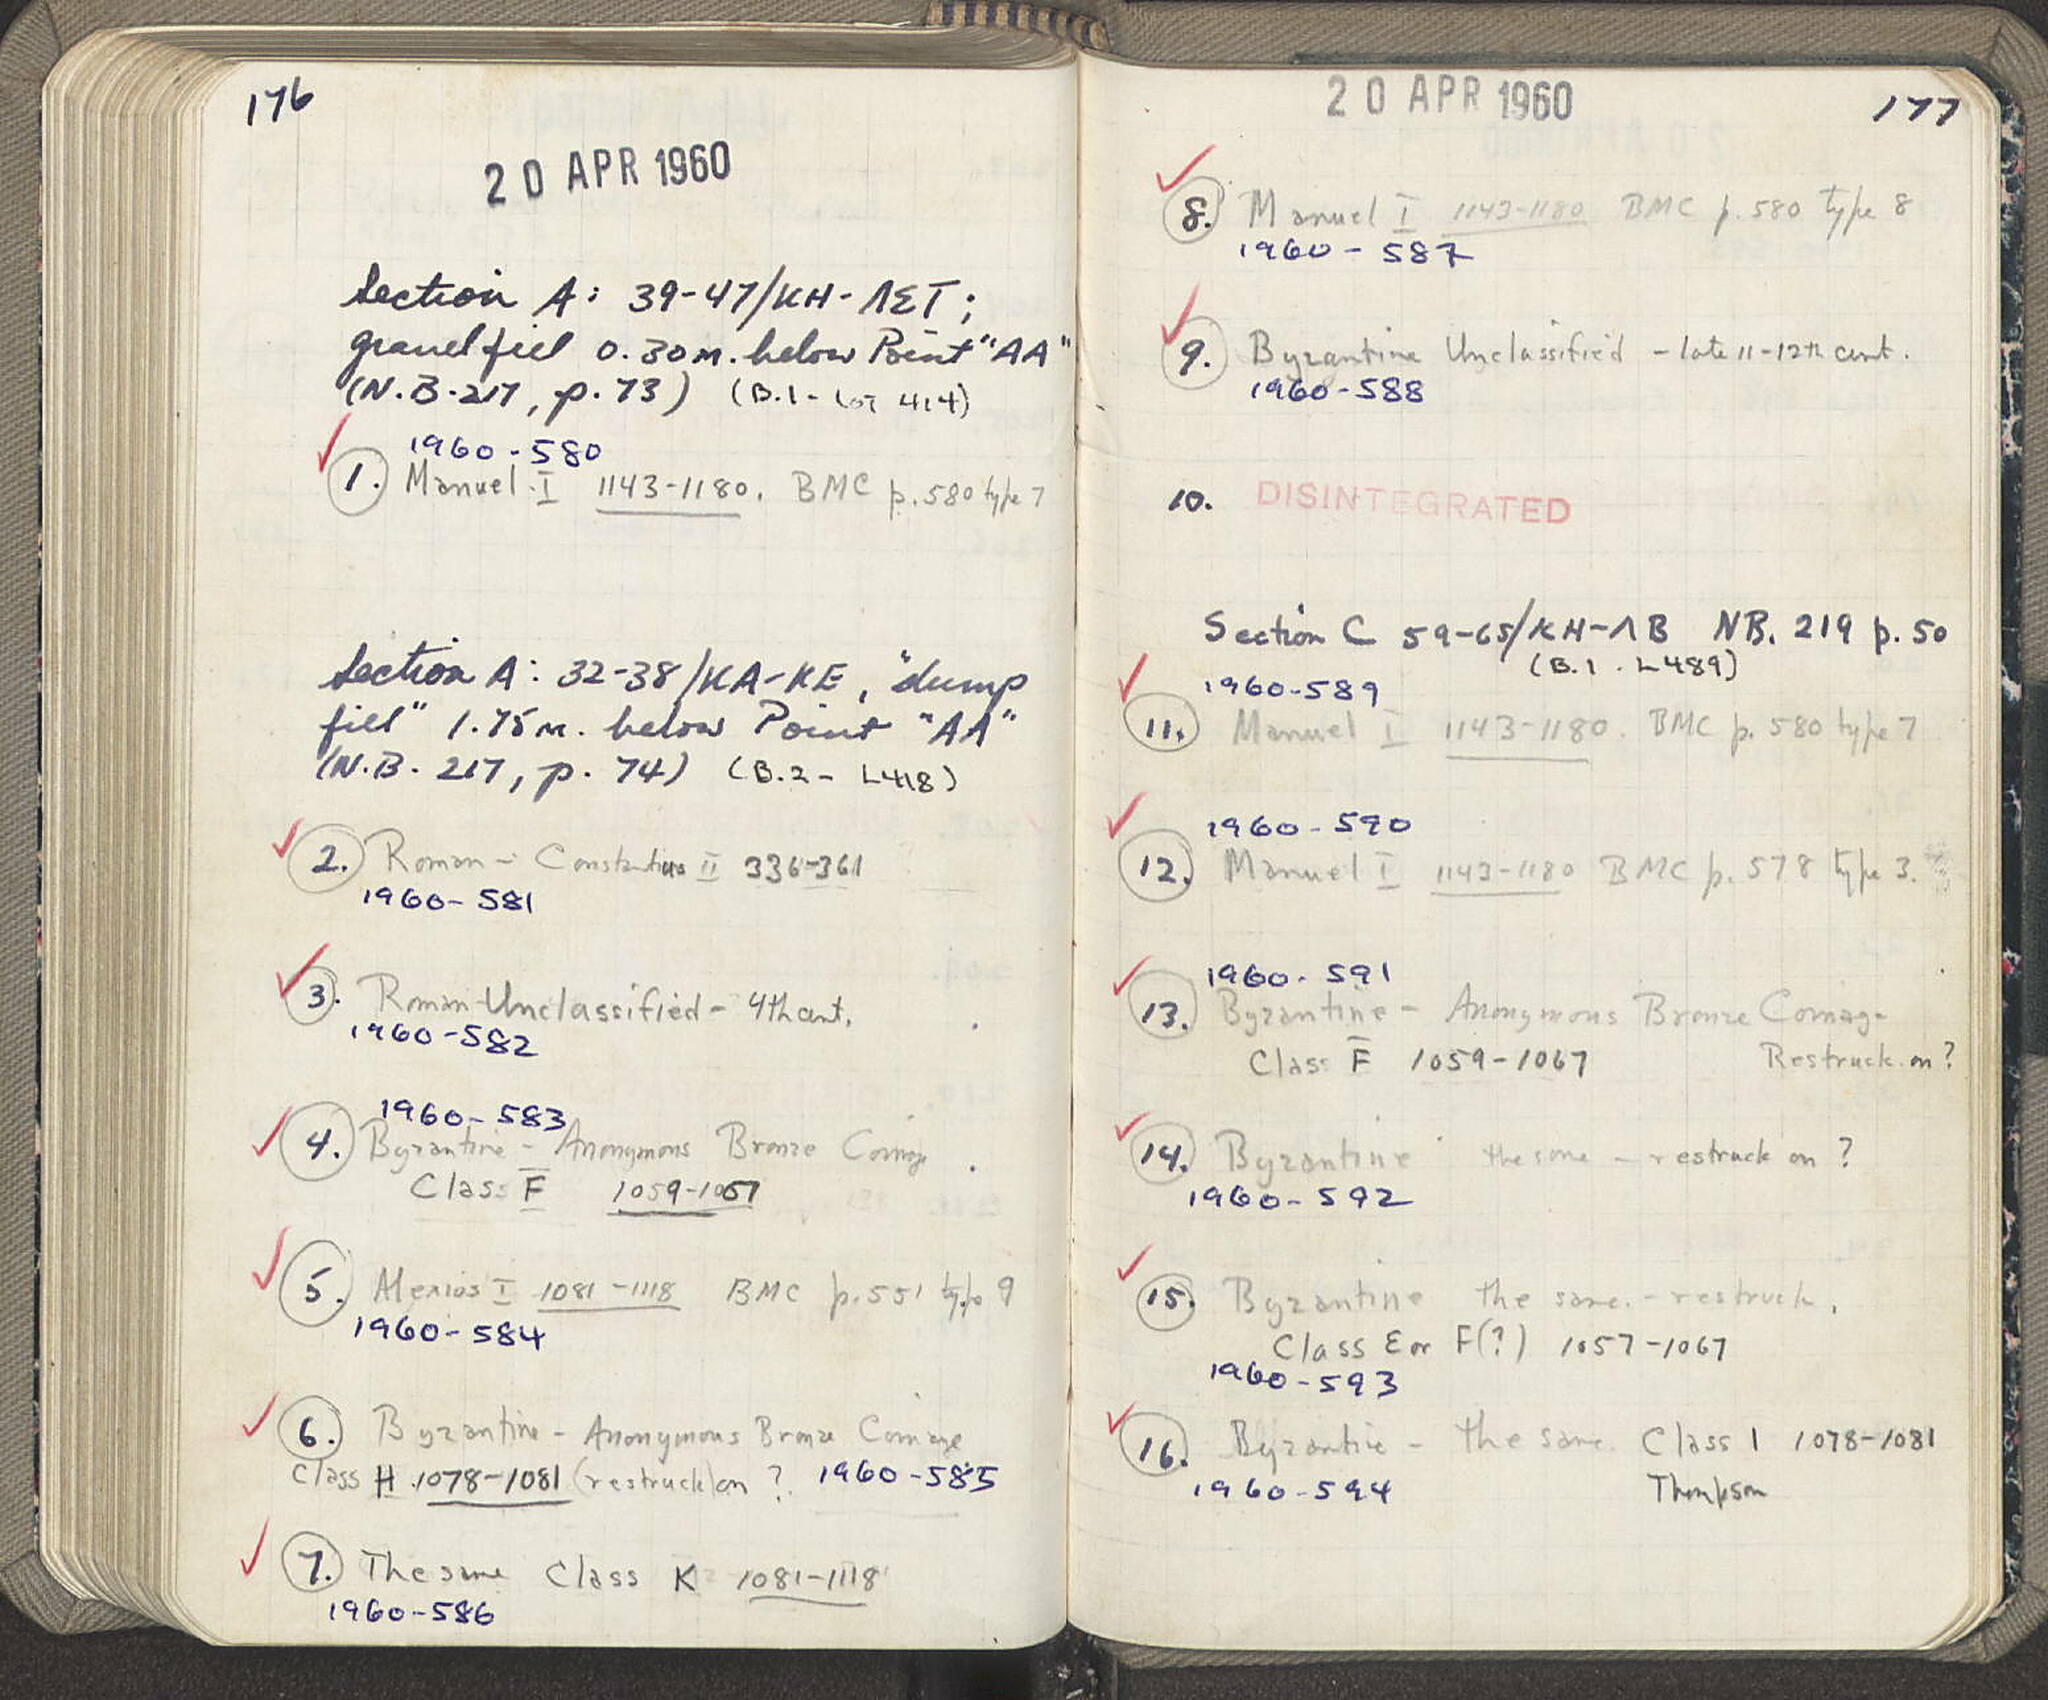 176
20 APR 1960
Section A: 39-47/KH-ΛΣΤ;
gravel fill 0.30m. below Point "AA"
(N.B. 217, p. 73) (B.1 - Lot 414)
1960-580
1. Manuel I 1143-1180. BMC p. 580 type 7
Section A: 32-38/KA-KE, "dump
fill" 1.75m. below Point "AA"
(N.B. 217, p. 74) (B.2 - L418)
2. Roman - Constantius II 336-361
1960-581
3. Roman-Unclassified - 4th cent.
1960-582
1960-583
4. Byzantine - Anonymous Bronze Coinage
Class F 1059-1067
5. Alexios I 1081-1118 BMC p. 551 type 9
1960-584
6. Byzantine - Anonymous Bronze Coinage
Class H 1078-1081 (restruck) on ? 1960-585
7. The same Class K 1081-1118
1960-586
20 APR 1960
177
8. Manuel I 1143-1180 BMC p. 580 type 8
1960-587
9. Byzantine Unclassified - late 11-12th cent.
1960-588
10. DISINTEGRATED
Section C 59-65/KH-ΛB NB. 219 p. 50
(B.1 - L489)
1960-589
11. Manuel I 1143-1180. BMC p. 580 type 7
1960-590
12. Manuel I 1143-1180 BMC p. 578 type 3.
1960-591
13. Byzantine - Anonymous Bronze Coinage
Class F 1059-1067 Restruck on ?
14. Byzantine the same - restruck on ?
1960-592
15. Byzantine the same. - restruck.
Class E or F(?) 1057-1067
1960-593
16. Byzantine - the same. Class I 1078-1081
1960-594 Thompson